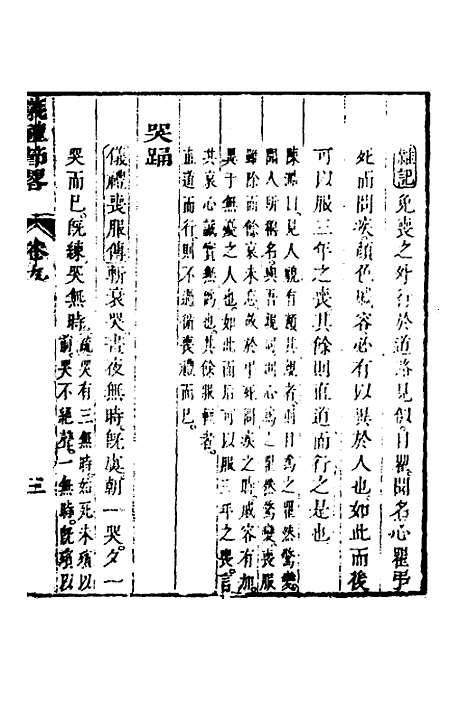 雜記免喪之外行於道路見似目瞿聞名心瞿弔
死而問疾顔色戚容必有以異於人也如此而後
可以服三年之喪其餘則直道而行之是也
陳澔曰見人貌有類其親者則目爲之瞿然驚變
聞人所稱名與吾親同則心爲之瞿然驚變喪服
雖除而餘哀未忘故於弔死問疾之時戚容有加
異于無憂之人也如此而后可以服三年之喪言
其哀心誠實無偽也其餘服輕者
直道而行則不過循喪禮而已
哭踊
儀禮喪服傳斬衰哭晝夜無時既虞朝一哭夕一
哭而已既練哭無時疏哭有三無時始死未殯以
前哭不絕聲一無時既殯以
儀禮節畧
卷九
三